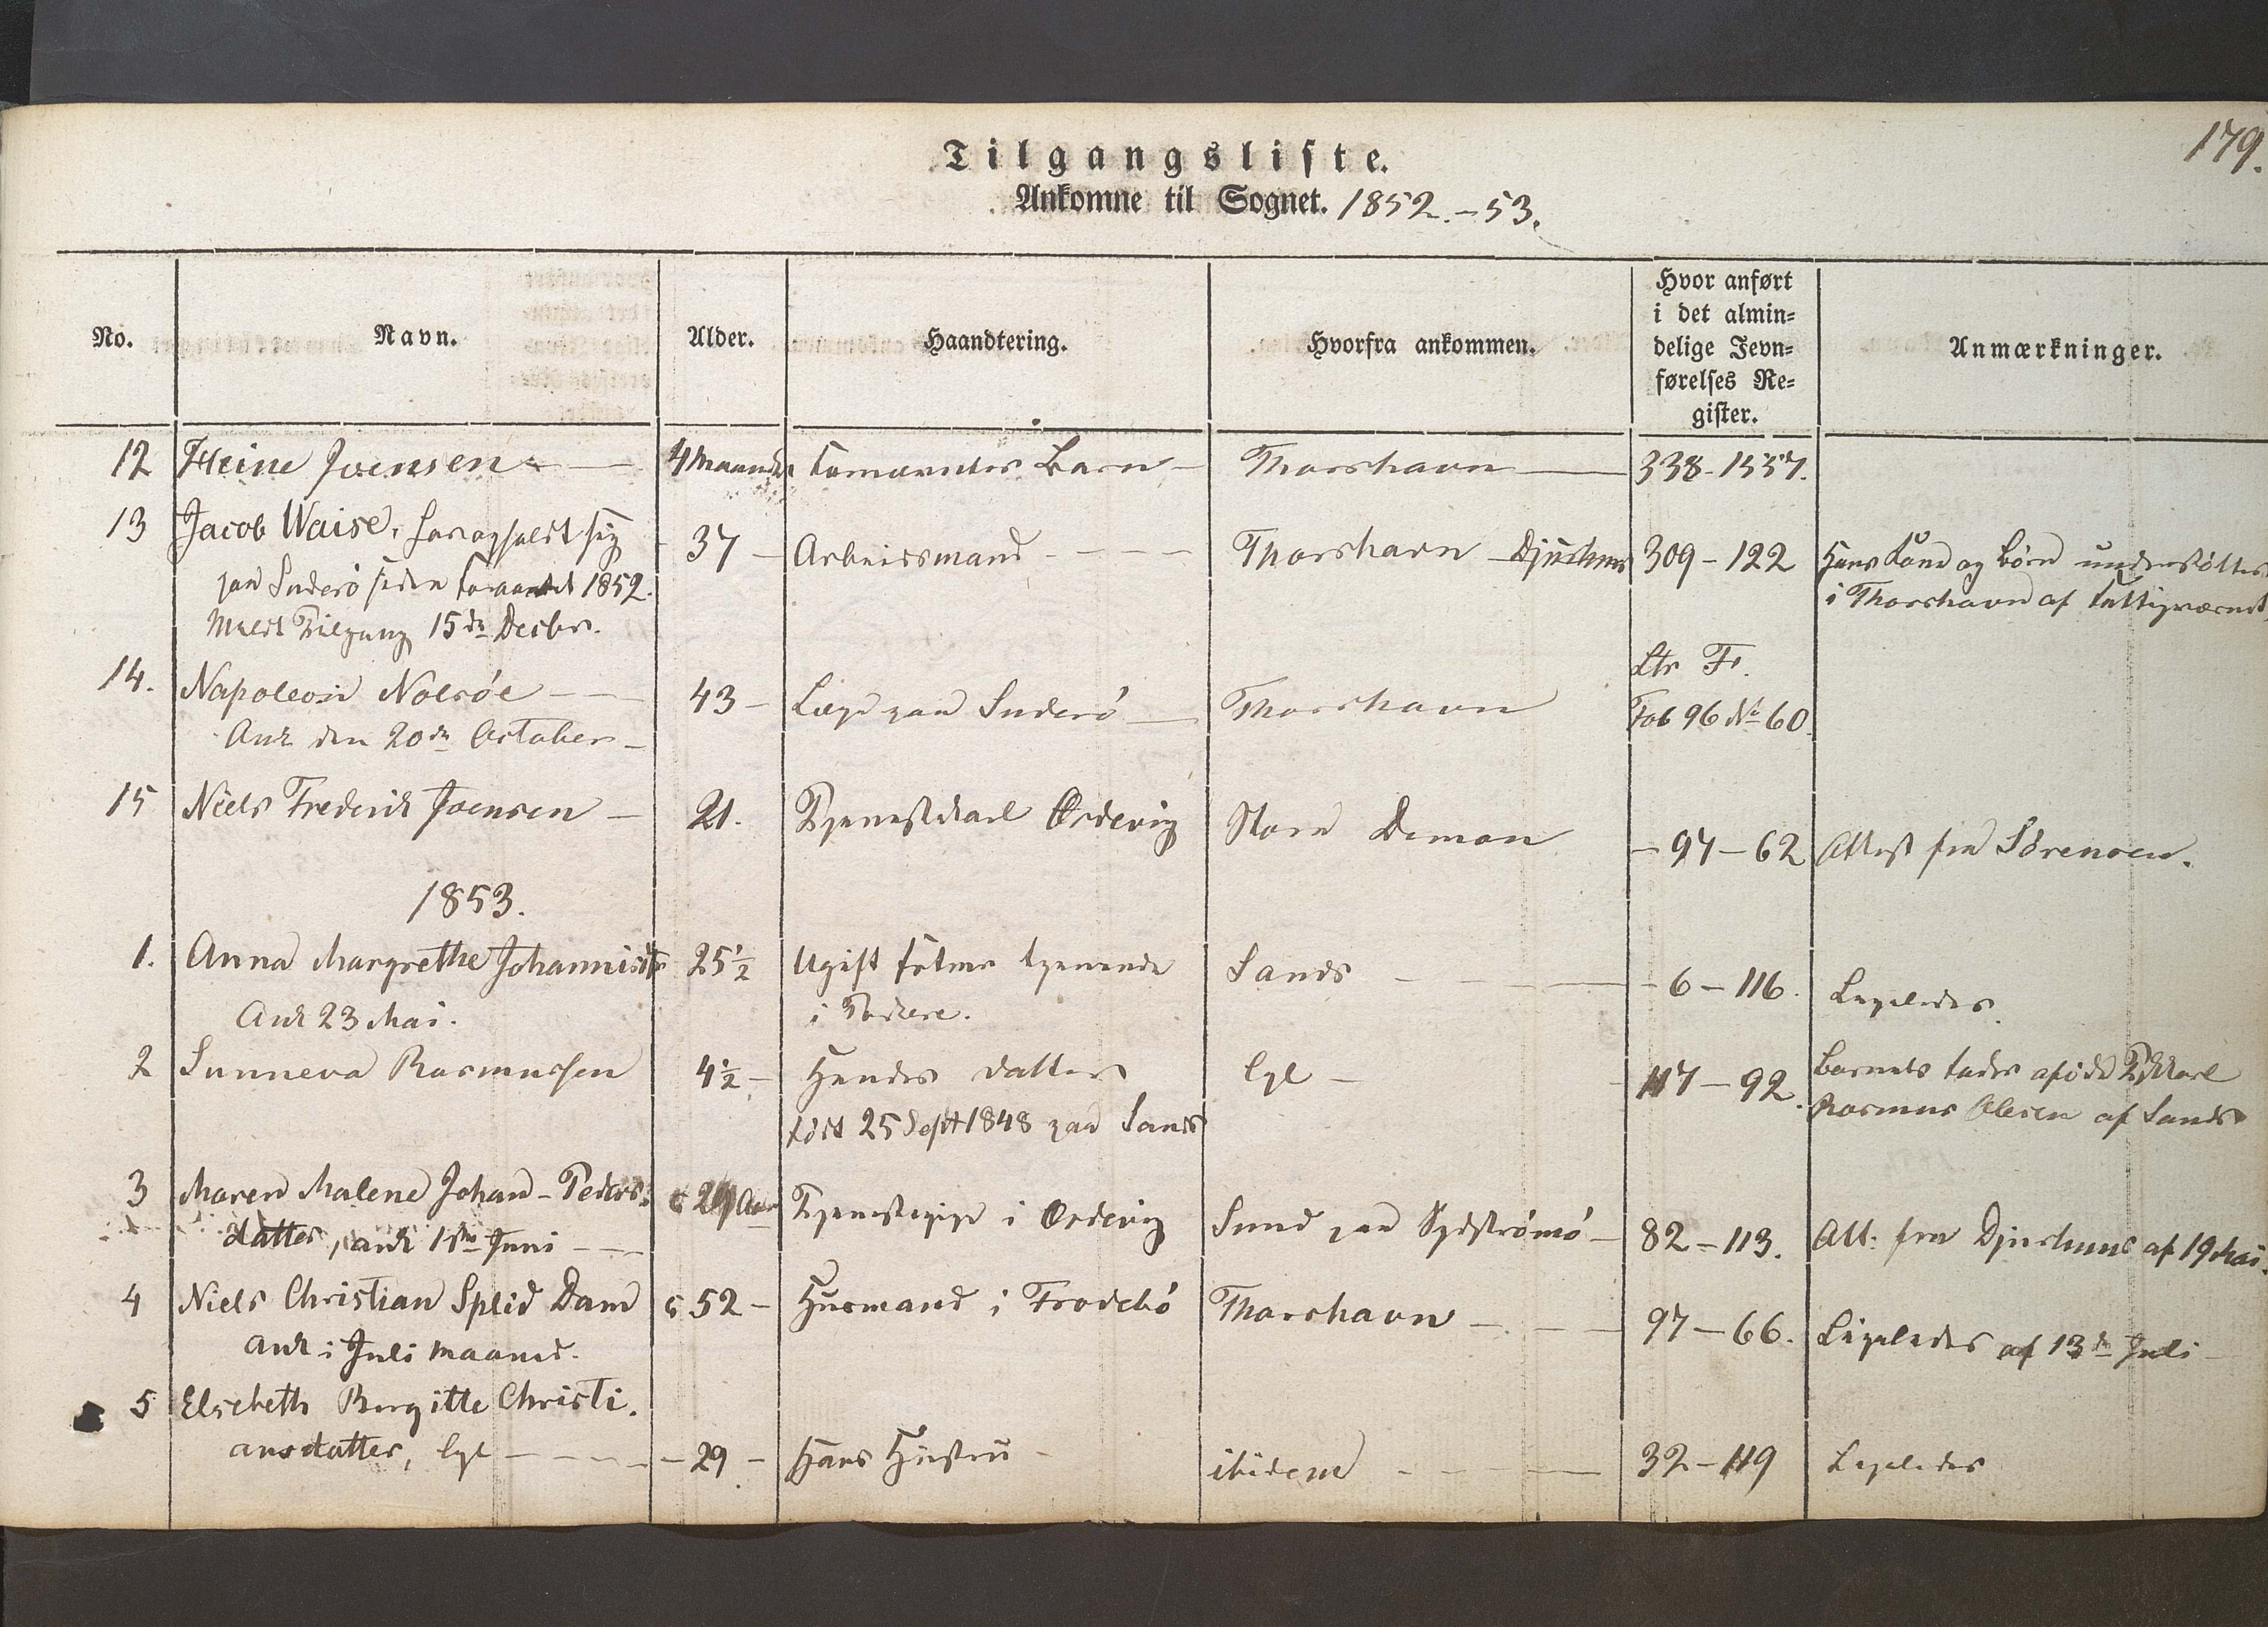 179.
Tilgangsliste.
Ankomne til Sognet. 1852.-53.
No. Navn. Alder. Haandtering. Hvorfra ankommen. Hvor anført i det almin= delige Jevn= førelses Re= gister. Anmærkninger.
12 Heine Joensen - 4 Maaneder Barn - Thorshavn - 338-1557.
13 Jacob Waise, har opholdt sig 37 - Arbeidsmand - Thorshavn - Djurhuus 309-122 Hans Kone og Børn understøttes
paa Suderø siden Foraaret 1852. i Thorshavn af Fattigvæsenet
Meldt Tilgang 15de Decbr.
14. Napoleon Nolsöe - 43 - Læge paa Suderö - Thorshavn Ltr F.
Ank den 20de October - Fol 96 No 60.
15 Niels Frederik Joensen - 21. Tjenestekarl Ordevig Store Dimon - 97-62 Attest fra Sörensen.
1853.
1. Anna Margrethe Johannisdtr 25 1/2 Ugift tjenende Sands - 6-116. Ligeledes.
Ank 23 Mai. i
2 Sunneva Rasmussen 4 1/2 - Hendes Datter lgl - 117-92. Barnets Fader
født 25 Sept 1848 paa Sands Rasmus Olesen af Sands
3 Maren Malene Johan-Peders- 29 Aar Tjenestepige i Ordevig Sund paa Sydströmö - 82-113. Att. fra Djurhuus af 19 Mai.
datter, ank 1ste Juni -
4 Niels Christian Splid Dam 52 - Huusmand i Frodebö Thorshavn - 97-66. Ligeledes af 13de Juli -
ank i Juli Maaned.
5 Elsebeth Birgitte Christi-
ansdatter, lgl - 29 - Hans Hustru - ibidem - 32-119 Ligeledes